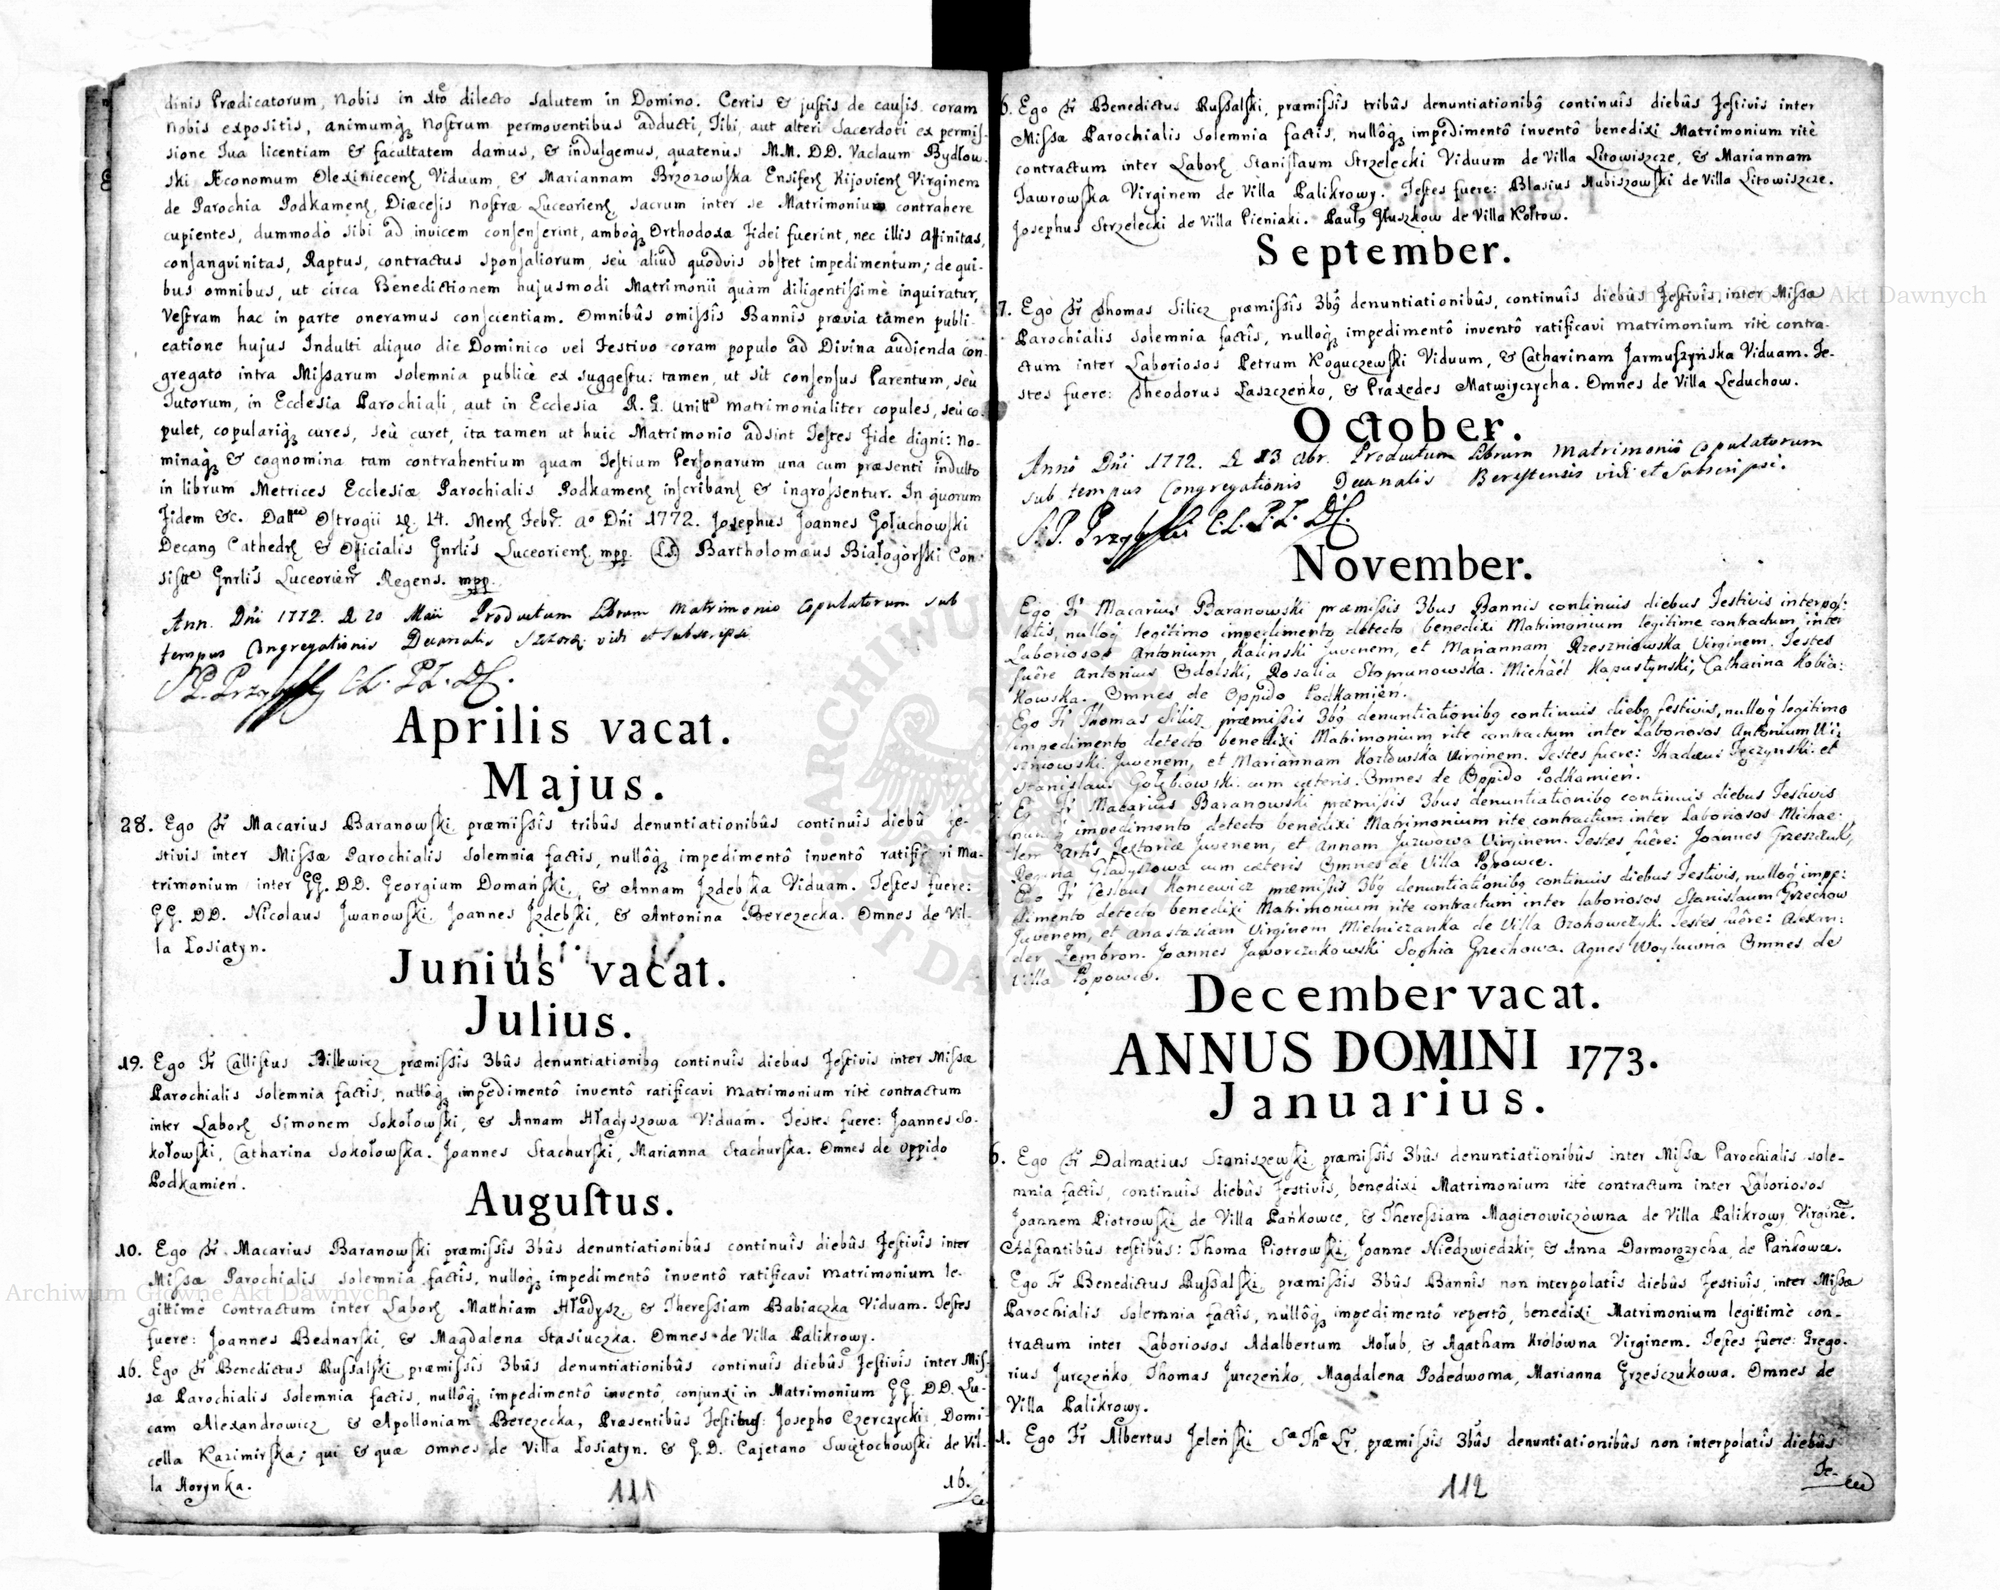 dinis Prædicatorum, Nobis in Xto dilecto Salutem in Domino. Certis & justis de causis coram
Nobis expositis, animumq; Nostrum permoventibus adducti, Tibi, aut alteri Sacerdoti ex permis-
sione Tua licentiam & facultatem damus, & indulgemus, quatenus MM. DD. Vaclaum Bydłow-
ski Æconomum Olexiniecens Viduum, & Mariannam Brzozowska Ensifers Kijoviens Virginem
de Parochia Podkamens, Diæcesis Nostræ Luceoriens, sacrum inter se Matrimonium contrahere
cupientes, dummodo sibi ad invicem consenserint, amboq; Orthodoxæ Fidei fuerint, nec illis Affinitas,
consangvinitas, Raptus, contractus Sponsaliorum, seù aliud quodvis obstet impedimentum; de qui-
bus omnibus, ut circa Benedictionem hujusmodi Matrimonii quàm diligentissimè inquiratur,
Vestram hac in parte oneramus conscientiam. Omnibûs omissîs Bannîs prævia tamen publi-
catione hujus Indulti aliquo die Dominico vel Festivo coram populo ad Divina audienda con-
gregato intra Missarum solemnia publicè ex suggestu: tamen, ut sit consensus Parentum, seù
Tutorum, in Ecclesia Parochiali, aut in Ecclesia R. G. Unitt matrimonialiter copules, seù co-
pulet, copulariq; cures, seù curet, ita tamen ut huic Matrimonio adsint Testes Fide digni: No-
minaq; & cognomina tam contrahentium quam Testium Personarum una cum præsenti indulto
in librum Metrices Ecclesiæ Parochialis Podkamens inscribans & ingrossentur. In quorum
Fidem &c. Datt Ostrogii D. 14. Mens Febr. Ao Dni 1772. Josephus Joannes Gołuchowski
Decang Cathedrs & Officialis Gnrlis Luceoriens mpp. (L.S.) Bartholomæus Białogòrski Con-
sistte Gnrlis Luceorien Regens. mpp.
Ann. Dni 1772. D 20 Maii Productum Librum Matrimonio Copulatorum sub
tempus Congregationis Decanalis vidi et Subscripsi
Aprilis vacat.
Majus.
28. Ego Fr Macarius Baranowski præmissîs tribûs denuntiationibûs continuîs diebû fe-
stivîs inter Missæ Parochialis solemnia factîs, nullôq; impedimentô inventô ratificavi Ma-
trimonium inter GG. DD. Georgium Domański, & Annam Jzdebska Viduam. Testes fuere:
GG. DD. Nicolaus Jwanowski. Joannes Jzdebski, & Antonina Berezecka. Omnes de Vil-
la Łosiatyn.
Junius vacat.
Julius.
19. Ego Fr Callistus Billewicz præmissîs 3bûs denuntiationibg continuîs diebus Festivîs inter Missæ
Parochialis solemnia factîs, nullôq; impedimentô inventô ratificavi Matrimonium ritè contractum
inter Labors Simonem Sokołowski, & Annam Hładyszowa Viduam. Testes fuere: Joannes So-
kołowski, Catharina Sokołowska. Joannes Stachurski, Marianna Stachurska. Omnes de Oppido
Podkamień.
Augustus.
10. Ego Fr. Macarius Baranowski præmissîs 3bûs denuntiationibûs continuîs diebûs Festivîs inter
Missæ Parochialis solemnia factîs, nulloq; impedimentô inventô ratificavi Matrimonium le-
gittimè contractum inter Labors Matthiam Hładysz, & Theressiam Babiaczka Viduam. Testes
fuere: Joannes Bednarski, & Magdalena Stasiuczka. Omnes de Villa Palikrowy.
16. Ego Fr Benedictus Russalski præmissîs 3bûs denuntiationibûs continuîs diebûs Festivîs inter Mis-
sæ Parochialis solemnia factîs, nullôq; impedimentô inventô, conjunxi in Matrimonium GG. DD. Lu-
cam Alexandrowicz & Apolloniam Berezecka, Præsentibûs Testibus: Josepho Czerczycki, Domi-
cella Kazimirska; qui & quæ omnes de Villa Łosiatyn. & G.D. Cajetano Swiętochowski de Vil-
la Horynka.
111
16.
6. Ego Fr Benedictus Russalski, præmissîs tribûs denuntiationibg continuîs diebûs Festivis inter
Missæ Parochialis solemnia factîs, nullôq; impedimentô inventô benedixi Matrimonium ritè
contractum inter Labors Stanisłaum Strzelecki Viduum de Villa Litowiszcze, & Mariannam
Jawrowska Virginem de Villa Palikrowy. Testes fuere: Blasius Hubiszowski de Villa Litowiszcze.
Josephus Strzelecki de Villa Pieniaki. Paulg Głuszkow de Villa Kołtow.
September.
7. Ego Fr Thomas Silicz præmissîs 3bg denuntiationibûs, continuîs diebûs Festivîs, inter Missæ
Parochialis solemnia factîs, nulloq; impedimentô inventô ratificavi matrimonium ritè contra-
ctum inter Laboriosos Petrum Koguczewski Viduum, & Catharinam Jarmuszyńska Viduam. Te-
stes fuere: Theodorus Łaszczeńko, & Praxedes Matwijczycha. Omnes de Villa Leduchow.
October.
Anno Dni 1772. D 13 8br. Productum Librum Matrimonio Copulatorum
sub tempus Congregationis Decanalis Berestensis vidi et Subscripsi.
November.
Ego Fr Macarius Baranowski præmissis 3bus Bannis continuis diebus Festivis interpol-
latis, nulloq legitimo impedimento detecto benedixi Matrimonium legitime contractum inter
Laboriosos Antonium Kalinski Juvenem, et Mariannam Rzeszniowska Virginem. Testes
fuêre Antonius Sdolski, Rosalia Stomunowska. Michàél Kapustynski, Catharina Kobia-
kowska. Omnes de Oppido Podkamień.
Ego Fr Thomas Silicz præmissis 3bg denuntiationibg continuis diebg festivis, nulloq legitimo
impedimento detecto benedixi Matrimonium rite contractum inter Laboriosos Antonium Wi-
szniowski Juvenem, et Mariannam Kozłowska Virginem. Testes fuere: Thadæus Tęczynski et
Stanislaus Gołębiowski cum cæteris. Omnes de Oppido Podkamień.
Ego Fr Macarius Baranowski præmissis 3bus denuntiationibg continuis diebus Festivis
nulloq impedimento detecto benedixi Matrimonium rite contractum inter Laboriosos Michae-
lem Artis Textoriæ Juvenem, et Annam Juzwowa Virginem. Testes fuêre: Joannes
Regina Gladyszowa cum cæteris Omnes de Villa Popowce.
Ego Fr Festus Koncewicz præmissis 3bg denuntiationibg continuis diebus Festivis, nulloq impe-
dimento detecto benedixi Matrimonium rite contractum inter laboriosos Stanislaum Grzechow
Juvenem, et Anastasiam Virginem Mielniczanka de Villa Orohowczyk. Testes fuêre: Alexan-
der Zembron. Joannes Jaworczukowski Sophia Grzechowa. Agnes Woytuwna Omnes de
Villa Popowce.
December vacat.
ANNUS DOMINI 1773.
Januarius.
6. Ego Fr Dalmatius Staniszewski præmissîs 3bûs denuntiationibûs inter Missæ Parochialis sole-
mnia factîs, continuîs diebûs Festivîs, benedixi Matrimonium ritè contractum inter Laboriosos
Joannem Piotrowski de Villa Pańkowce, & Theressiam Magierowiczòwna de Villa Palikrowy Virginē.
Adstantibûs testibûs: Thoma Piotrowski, Joanne Niedzwiedzki, & Anna Darmorszycha, de Pańkowce.
Ego Fr Benedictus Russalski, præmissîs 3bûs Bannîs non interpolatîs diebûs Festivîs, inter Missæ
Parochialis solemnia factîs, nullôq; impedimentô repertô, benedixi Matrimonium legittimè con-
tractum inter Laboriosos Adalbertum Hołub, & Agatham Królówna Virginem. Testes fuere: Grego-
rius Jurczeńko, Thomas Jurczeńko, Magdalena Podedworna, Marianna Grześczukowa. Omnes de
Villa Palikrowy.
Ego Fr Albertus Jeleński Sæ Thæ Lr, præmissîs 3bûs denuntiationibûs non interpolatîs diebûs
Fe-
112
Archiwum Główne Akt Dawnych
Archiwum Główne Akt Dawnych
ARCHIWUM AKT DAWNYCH